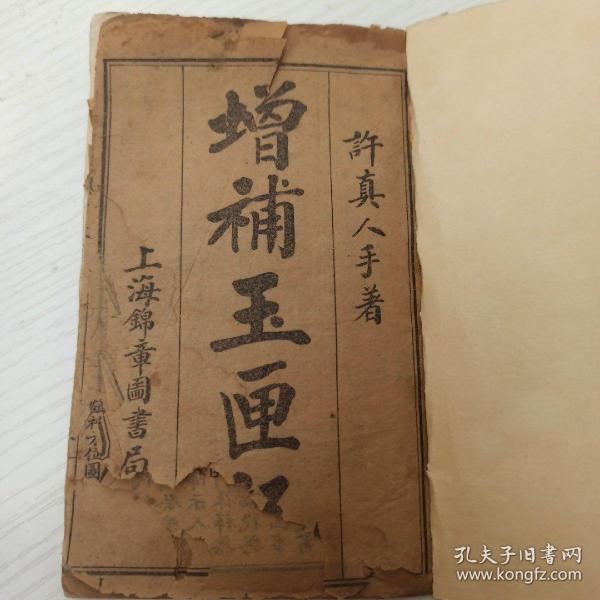 許真人手著
增補玉匣
上海錦章圖書局
方位圖
孔夫子旧书网
www.kongfz.com